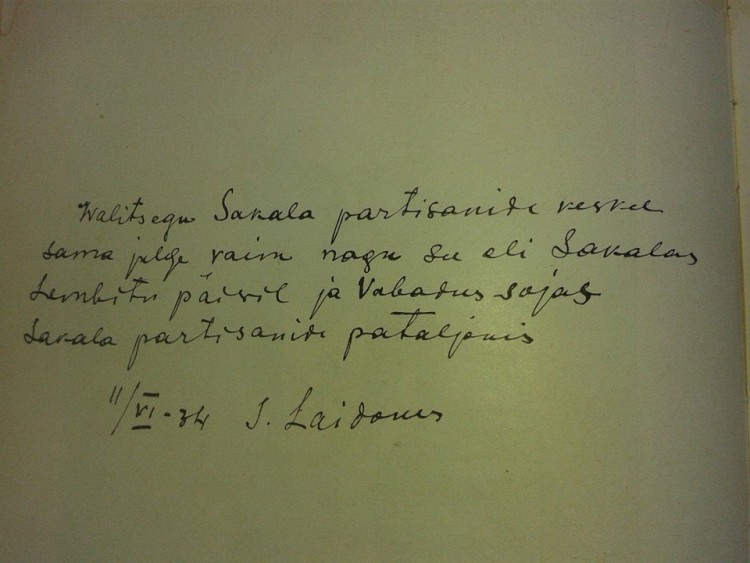 Walitsegu Sakala partisanide keskel
sama julge vaim nagu see oli Sakalas
Lembitu päivil ja Vabadus sojas
Sakala partisanide pataljonis
11/VI-34 J. Laidoner